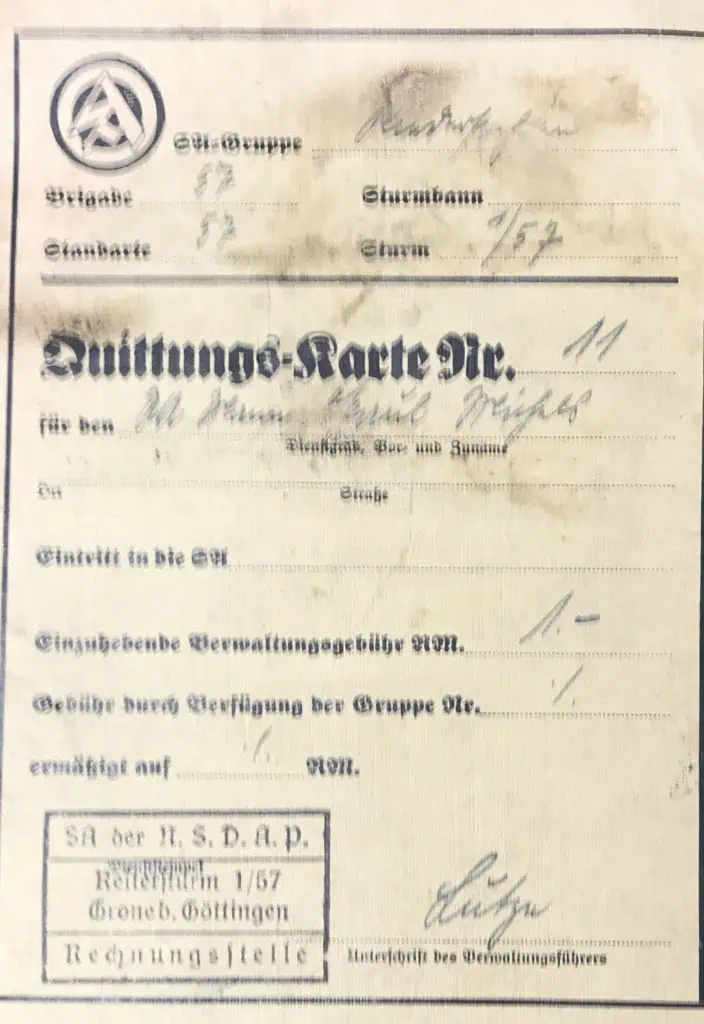 SA-Gruppe Niedersachsen
Brigade 57 Sturmbann
Standarte 57 Sturm 1/57
Quittungs-Karte Nr. 11
für den SA Mann Paul Michels
Dienstgrad, Vor- und Zuname
Ort Straße
Eintritt in die SA
Einzuhebende Verwaltungsgebühr RM. 1.-
Gebühr durch Verfügung der Gruppe Nr. ./.
ermäßigt auf ./. RM.
SA der N.S.D.A.P.
Dienststempel
Reitersturm 1/57
Groneb. Göttingen
Rechnungsstelle
Lutze
Unterschrift des Verwaltungsführers